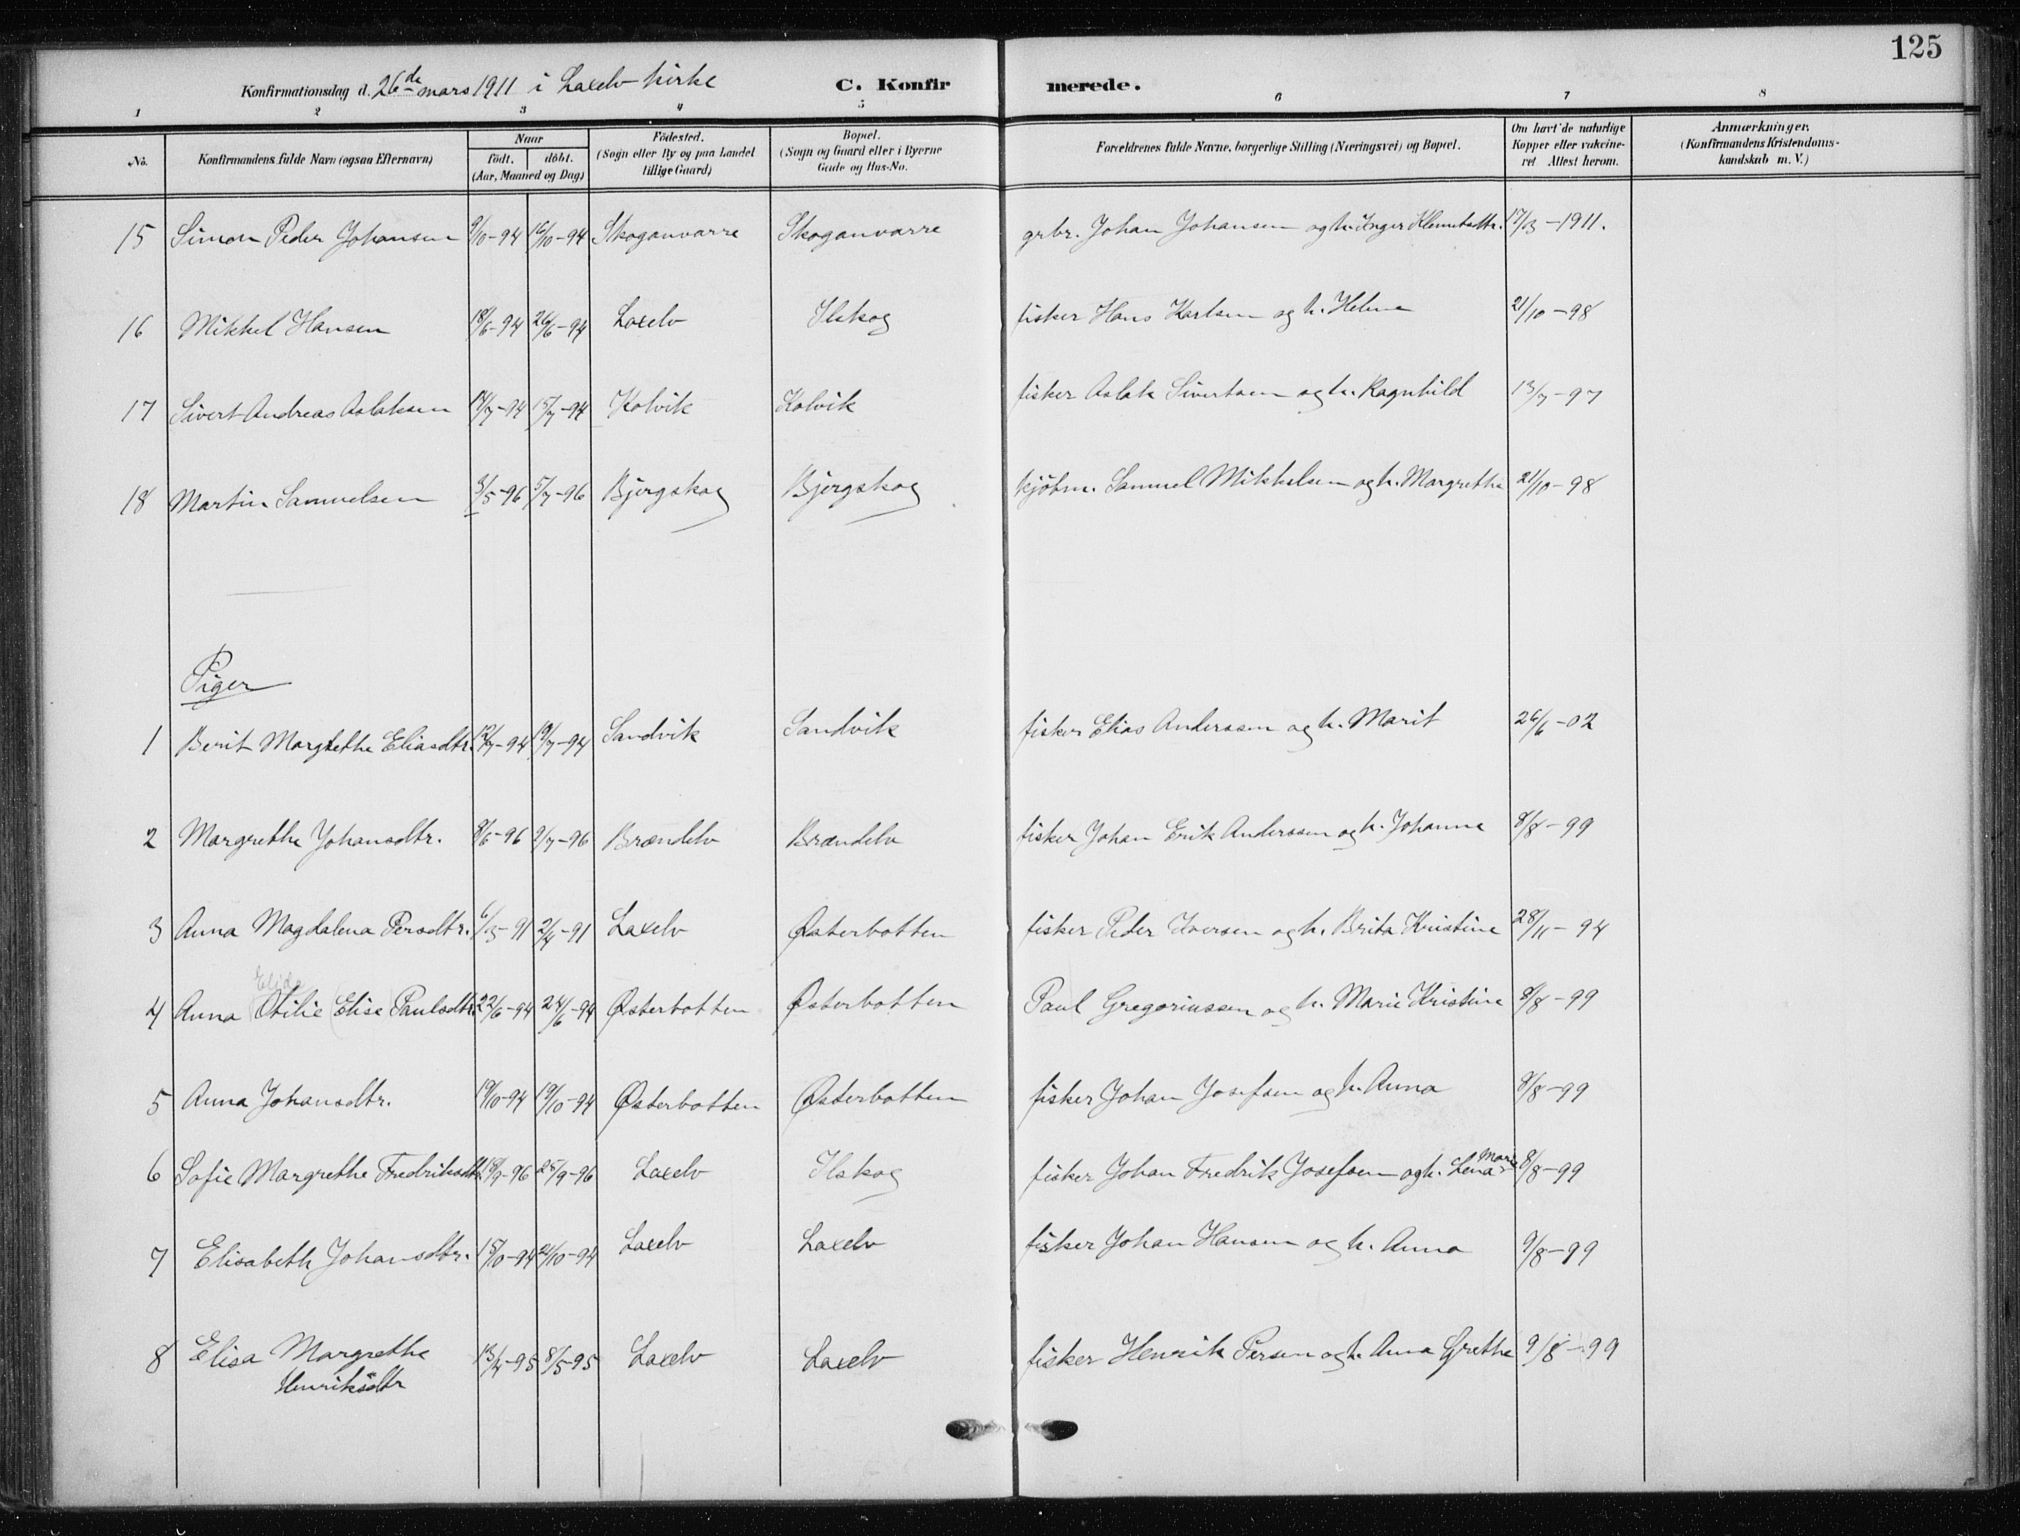 125
Konfirmationsdag d. 26de mars 1911 i Laxelv kirke C. Konfirmerede.
1 2 3 4 5 6 7 8
No. Konfirmandens fulde Navn (ogsaa Efternavn) Naar födt. döbt. (Aar, Maaned og Dag) Födested. (Sogn eller By og paa Landet tillige Gaard) Bopæl. (Sogn og Gaard eller i Byerne Gade og Hus-No. Forældrenes fulde Navne, borgerlige Stilling (Næringsvei) og Bopæl. Om havt de naturlige Kopper eller vakcineret Attest herom. Anmærkninger. (Konfirmandens Kristendomskundskab m. V.)
15 Simon Peder Johansen 9/10-94 16/10-94 Skoganvarre Skoganvarre grbr. Johan Johansen og h. Inger Klemetsdtr. 17/3-1911.
16 Mikkel Hansen 18/6-94 26/6-94 Laxelv Ilskog fisker Hans Karlsen og h. Helene 21/10-98
17 Sivert Andreas Aslaksen 14/7-94 15/7-94 Kolvik Kolvik fisker Aslak Sivertsen og h. Ragnhild 13/7-97
18 Martin Samuelsen 3/5-96 5/7-96 Bjergskog Bjergskog kjöbm. Samuel Mikkelsen og h. Margrethe 21/10-98
Piger
1 Berit Margrethe Eliasdtr. 12/7-94 19/7-94 Sandvik Sandvik fisker Elias Anderssen og h. Marit 26/6-02
2 Margrethe Johansdtr. 8/6-96 2/7-96 Brændelv Brændelv fisker Johan Erik Anderssen og h. Johanna 8/8-99
3 Anna Magdalena Persdtr. 6/3-91 2/4-91 Laxelv Østerbotten fisker Peder Iversen og h. Brita Kristine 28/11-94
Elida
4 Anna Otilie (Elise) Paulsdtr. 22/6-94 24/6-94 Østerbotten Østerbotten Paul Gregoriussen og h. Marie Kristine 8/8-99
5 Anna Johansdtr. 19/10-94 19/10-94 Østerbotten Østerbotten fisker Johan Josefsen og h. Anna 8/8-99
6 Sofie Margrethe Fredriksdtr. 18/9-96 25/9-96 Laxelv Ilskog fisker Johan Fredrik Josefsen og h. Lena Marie 8/8-99
7 Elisabeth Johansdtr. 15/10-94 21/10-94 Laxelv Laxelv fisker Johan Hansen og h. Anna 9/8-99
8 Elisa Margrethe 13/4-95 8/5-95 Laxelv Laxelv fisker Henrik Persen og h. Anna Grethe 9/8-99
Henriksdtr